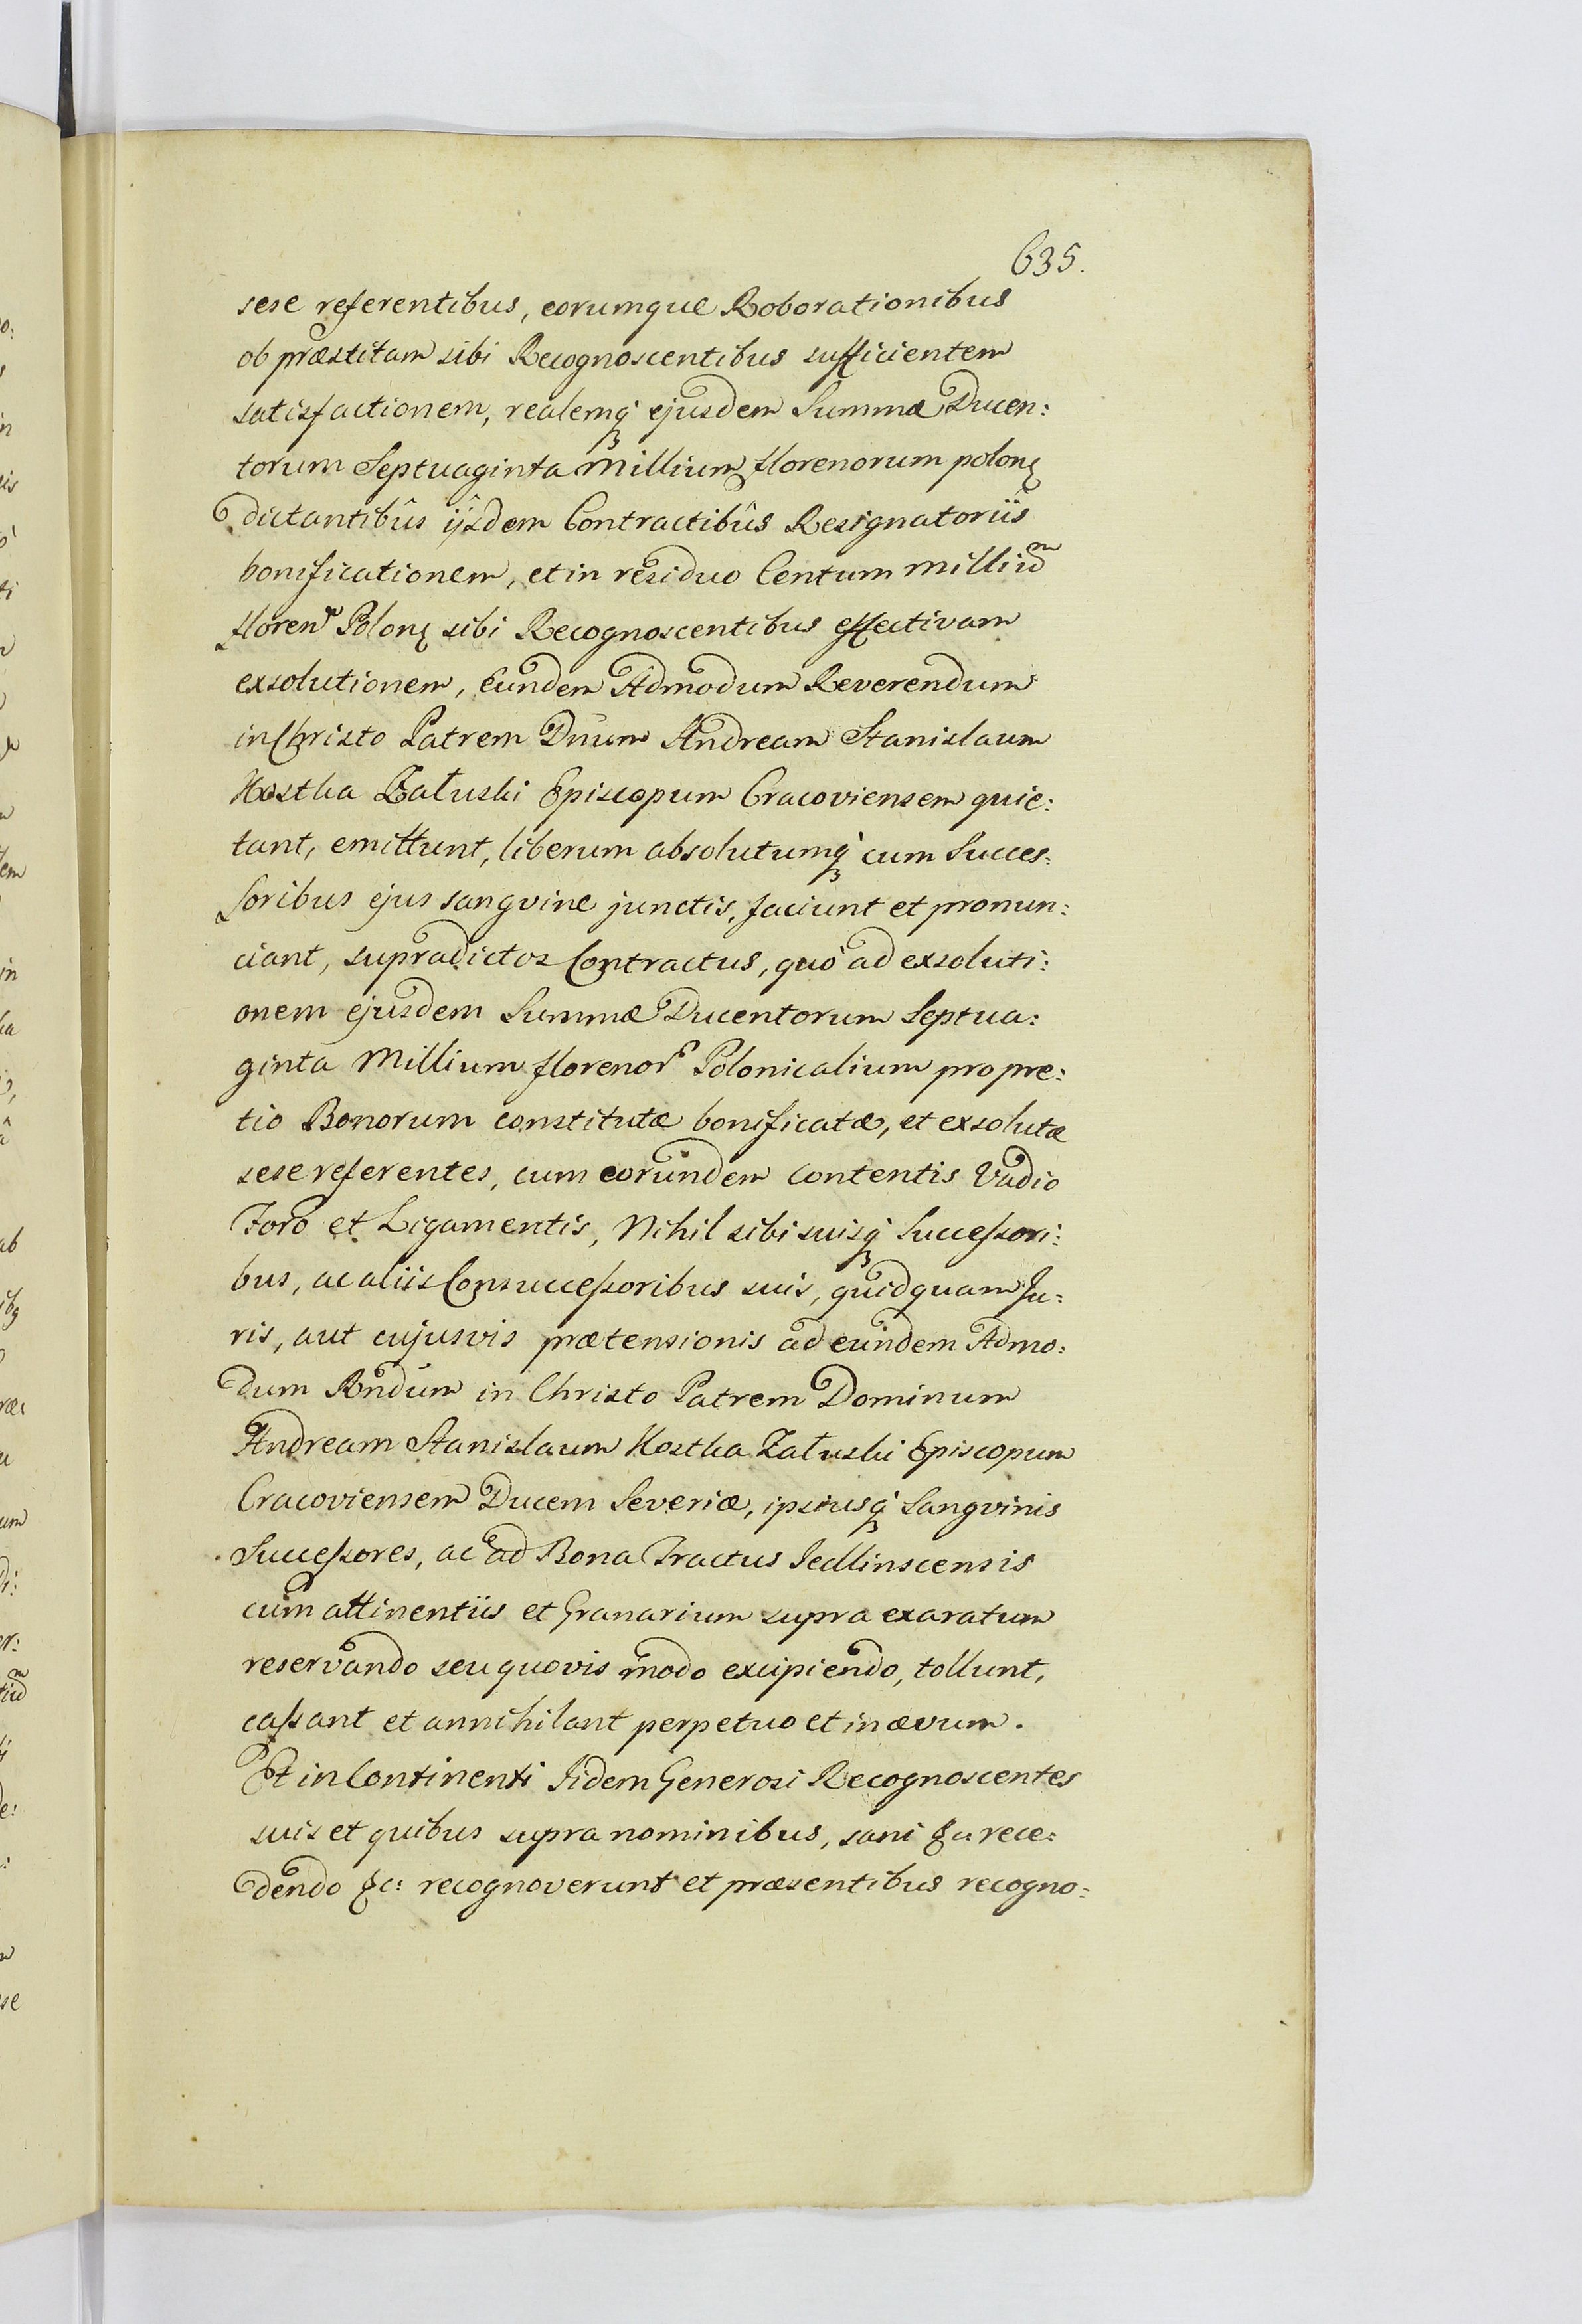 635.
sese referentibus, eorumque Roborationibus
ob præstitam sibi Recognoscentibus sufficientem
satisfactionem, realemq́ꝫ ejusdem Summæ Ducen:
torum Septuaginta Millium florenorum polonꝫ
dictantibûs ijsdem Contractibûs Resignatoriis
bonificationem, et in residuo Centum milliũᵐ
florenʳ Polonꝫ sibi Recognoscentibus effectivam
exsolutionem, Eundem Admodum Reverendum
in Christo Patrem Dnum Andream Stanislaum
Kostka Załuski Episcopum Cracoviensem quie:
tant, emittunt, liberum absolutumq́ꝫ cum Succes:
soribus ejus sangvine junctis, faciunt et pronun:
ciant, supradictos Contractus, quò ad exsoluti:
onem ejusdem Summæ Ducentorum Septua:
ginta Millium florenorʳ Polonicalium pro pre:
tio Bonorum constitutæ bonificatæ, et exsolutæ
sese referentes, cum eorundem contentis Vadio
Foro et Ligamentis, Nihil sibi suisq́ꝫ Successori:
bus, ac aliis Consuccessoribus suis, quidquam Ju:
ris, aut cujusvis prætensionis ad eundem Admo:
dum Rndum in Christo Patrem Dominum
Andream Stanislaum Kostka Załuski Episcopum
Cracoviensem Ducem Severiæ, ipsiusq́ꝫ Sangvinis
Successores, ac ad Bona Tractus Jedlinscensis
cum attinentiis et Granarium supra exaratum
reservando seu quovis modo excipiendo, tollunt,
cassant et annihilant perpetuo et in ævum.
Et in Continenti Iidem Generosi Recognoscentes
suis et quibus supra nominibus, sani &c rece:
dendo &c: recognoverunt et præsentibus recogno: